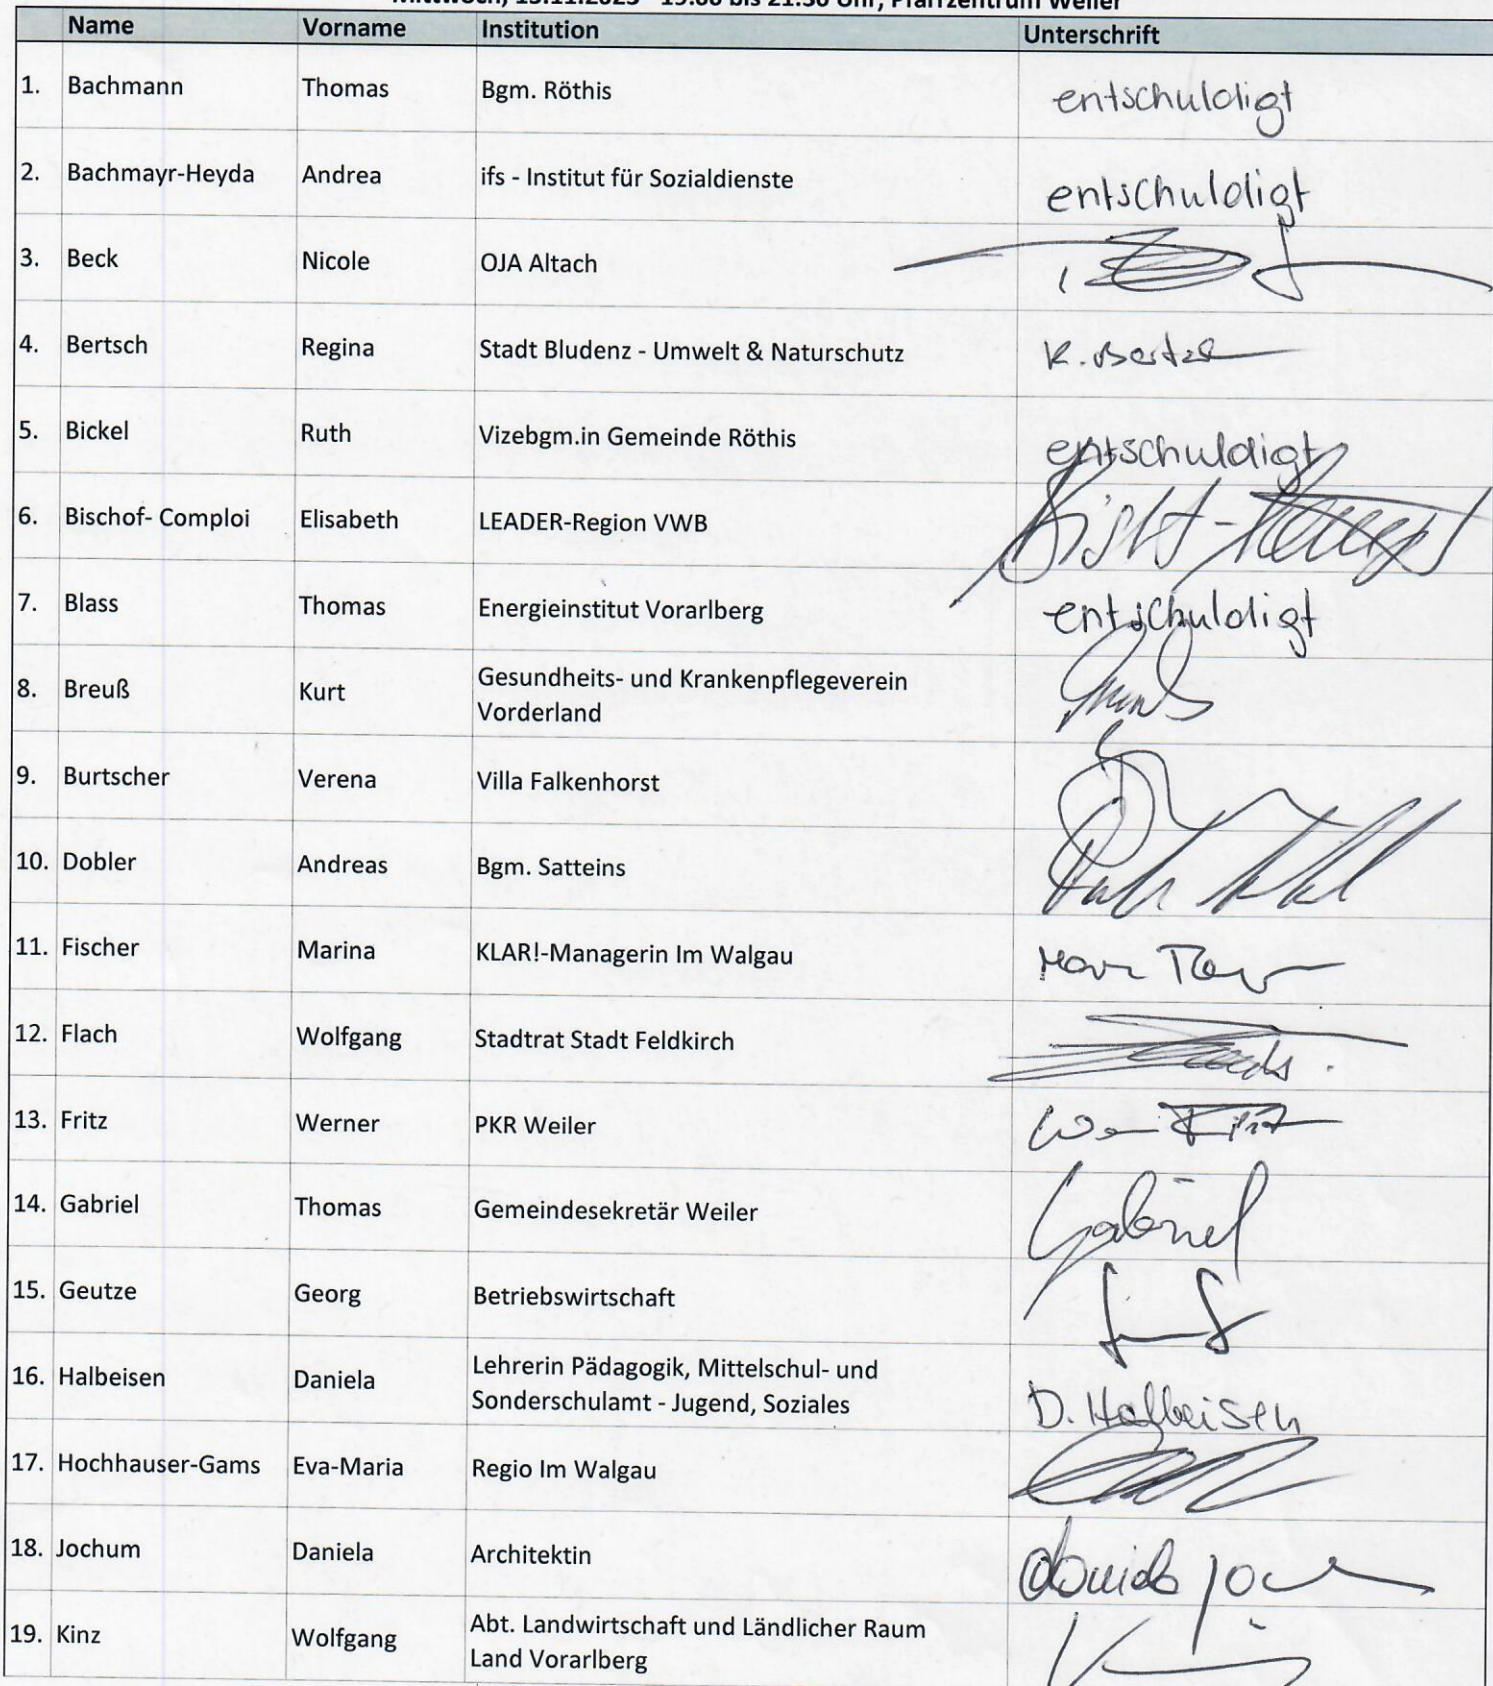 Mittwoch, 15.11.2023 - 19:00 bis 21:30 Uhr, Pfarrzentrum Weiler
Name Vorname Institution Unterschrift
1. Bachmann Thomas Bgm. Röthis entschuldigt
2. Bachmayr-Heyda Andrea ifs - Institut für Sozialdienste entschuldigt
3. Beck Nicole OJA Altach
4. Bertsch Regina Stadt Bludenz - Umwelt & Naturschutz
5. Bickel Ruth Vizebgm.in Gemeinde Röthis entschuldigt
6. Bischof- Comploi Elisabeth LEADER-Region VWB
7. Blass Thomas Energieinstitut Vorarlberg entschuldigt
8. Breuß Kurt Gesundheits- und Krankenpflegeverein
Vorderland
9. Burtscher Verena Villa Falkenhorst
10. Dobler Andreas Bgm. Satteins
11. Fischer Marina KLAR!-Managerin Im Walgau
12. Flach Wolfgang Stadtrat Stadt Feldkirch
13. Fritz Werner PKR Weiler
14. Gabriel Thomas Gemeindesekretär Weiler Gabriel
15. Geutze Georg Betriebswirtschaft
16. Halbeisen Daniela Lehrerin Pädagogik, Mittelschul- und
Sonderschulamt - Jugend, Soziales D. Halbeisen
17. Hochhauser-Gams Eva-Maria Regio Im Walgau
18. Jochum Daniela Architektin
19. Kinz Wolfgang Abt. Landwirtschaft und Ländlicher Raum
Land Vorarlberg